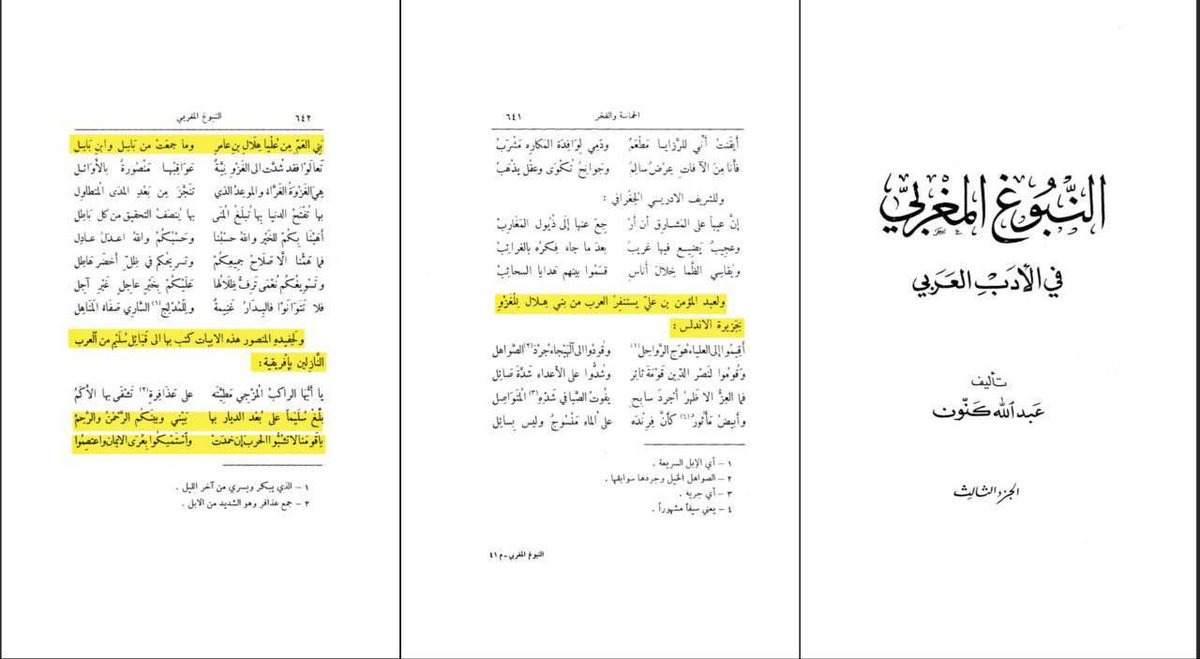 النُّبُوغُ المَغْرِبِيّ
في الأدَبِ العَرَبي
تأليف
عَبد الله كَنّون
الجزء الثالث
الحماسة والفخر ٦٤١
أيقَنتُ أنّي للرَّزايا مَطْعَمٌ ودَمي لوَافِدَة المكاره مَشْرَبُ
فأنا مِنَ الآفاتِ عِرْضٌ سالِمٌ وجَوانِحٌ تُكْوَى وعقْلٌ يذْهَبُ
وللشريف الادريسي الجغرافي :
إنَّ عيباً على المشارِق أن أرْ جعَ عنها إلى ذُيول المغارِبْ
وعجيبٌ يَضيع فيها غريبٌ بعدَما جاء فِكرُه بالغرائبْ
ويقاسي الظَّما خِلالَ أُناسٍ قسَمُوا بينهم هَدايا السحائبْ
ولعبد المؤمن بن عليّ يستنفِرُ العرب من بني هلال لِلْغَزْوِ
بجزيرة الاندلس :
أقِيمُوا إلى العلياءِ هوجَ الرَّواحِلِ(١) وقُودُوا الى الهَيْجاءِ جُرْدَ(٢) الصَّواهل
وقُومُوا لنَصْر الدِّين قَوْمَةَ ثائِرٍ وشُدُّوا على الأعداء شَدَّةَ صائِل
فما العِزُّ الا ظَهرُ أجردَ سابِحٍ يفُوتُ الصَّبا في شَدِّهِ(٣) المُتَواصِل
وأبيضَ مَأْثُورٍ(٤) كأنَّ فِرِنْدَهُ على الماء مَنْسُوجٌ وليس بِسائِل
١ – أي الإبل السريعة .
٢ – الصواهل الخيل وجردها سوابقها .
٣ – أي جريه .
٤ – يعني سيفاً مشهوراً .
النبوغ المغربي – م ٤١
٦٤٢ النبوغ المغربي
بَنِي العَمِّ مِن عُلْيا هِلَالِ بنِ عامرٍ وما جمعَتْ من باسِل وابنِ باسِل
تعالَوا فقد شُدَّت الى الغَزْوِ نِيَّةٌ عواقِبُهَا مَنْصُورةٌ بالأَوائل
هيَ الغَزْوةُ الغَرَّاءُ والموعِدُ الذي تنَجَّز مِن بَعْدِ المَدَى المُتطاول
بها تُفْتَحُ الدنيا بِها تُبلَغُ المُنَى بها يُنصَفُ التحقيق من كل باطِل
أهَبْنَا بِكُمْ للخَيْر واللهُ حَسْبُنا وحَسْبُكُمُ واللهُ اعدَلُ عادِل
فَما هَمُّنا الَّا صَلاحُ جميعِكُمْ وتَسريحُكم في ظِلِّ أخضَرَ هاطِل
وتَسْوِيغُكُم نُعْمَى تَرِفُّ ظِلَالُها عَلَيْكُمْ بِخَيْرٍ عاجِلٍ غَيْرِ آجِل
فلا تَتَوَانَوْا فالبِدَارُ غَنِيمَةٌ ولِلْمُدْلِجِ(١) السَّاري صَفاءُ المَناهِل
ولحفيدهِ المنصور هذه الابيات كتب بها الى قبائل سُلَيْم من العرب
النَّازلين بإفريقية :
يا أيُّهَا الراكبُ المُزْجِي مَطِيَّتَه على عَذَافِرةٍ(٢) تَشْقَى بها الأكَمُ
بلِّغْ سُلَيْماً على بُعْد الديار بها بَيْني وبينَكُم الرَّحْمَنُ والرَّحِمُ
ياقَومَنا لا تشُبُّوا الحرب إن خمدَتْ وٱسْتَمْسِكُوا بعُرَى الايمَانِ واعتصِمُوا
١ – الذي يبكر ويسري من آخر الليل .
٢ – جمع عذافر وهو الشديد من الابل .